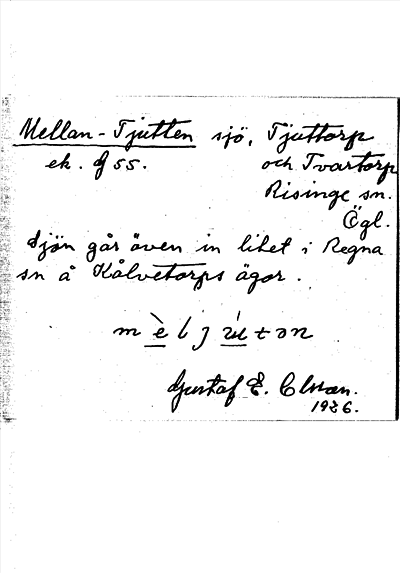 Mellan-Tjutten sjö, Tjuttorp
ek. J 55. och Tvartorp
Risinge sn.
Ögl.
Sjön går även in litet i Regna
sn å Kålvetorps ägor.
m è l j ú t ə n
Gustaf E. Olsson.
1926.